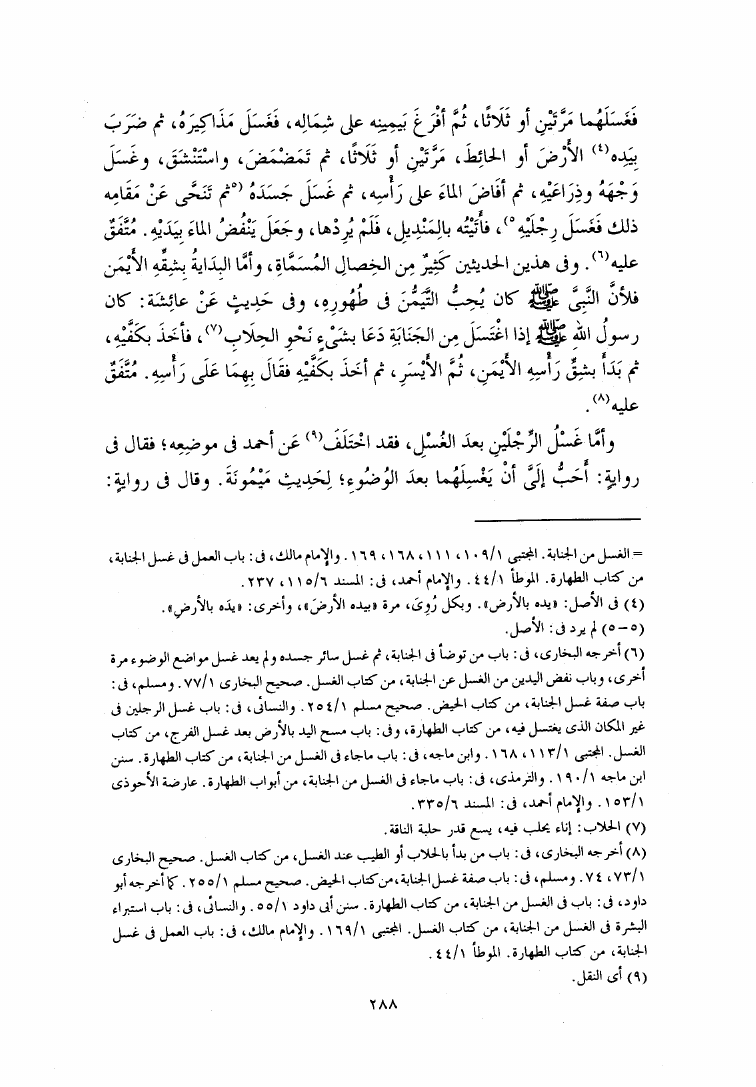 فَغَسَلَهُما مَرَّتَيْنِ أو ثَلَاثًا، ثُمَّ أفْرَغَ بَيمِينِه على شِمَالِه، فَغَسَلَ مَذَاكِيرَهُ، ثم ضَرَبَ
بِيَدِه(٤) الأَرْضَ أو الحَائِطَ، مَرَّتَيْنِ أو ثَلَاثًا، ثم تَمَضْمَضَ، واسْتَنْشَقَ، وغَسَلَ
وَجْهَهُ وذِرَاعَيْهِ، ثم أفَاضَ الماءَ على رَأْسِه، ثم غَسَلَ جَسَدَهُ (٥ثم تَنَحَّى عَنْ مَقَامِه
ذلك فَغَسَلَ رِجْلَيْهِ٥)، فأتَيْتُه بالمَنْدِيلِ، فَلَمْ يُرِدْها، وجَعَلَ يَنْفُضُ الماءَ بِيَدَيْهِ. مُتَّفَقٌ
عليه(٦). وفى هذين الحديثين كَثِيرٌ مِن الخِصالِ المُسَمَّاةِ، وأمَّا البِدَايةُ بشِقِّه الأَيْمَنِ
فلأنَّ النَّبِىَّ ﷺ كان يُحِبُّ التَّيَمُّنَ فى طُهُورِهِ، وفى حَدِيثٍ عَنْ عائِشَةَ: كان
رسولُ اللهِ ﷺ إذا اغْتَسَلَ مِن الجَنَابَةِ دَعَا بشَىْءٍ نَحْوِ الحِلَابِ(٧)، فأخَذَ بكَفَّيْهِ،
ثم بَدَأَ بشِقِّ رَأْسِهِ الأَيْمَنِ، ثُمَّ الأيْسَرِ، ثم أخَذَ بكَفَّيْهِ فقَالَ بِهِمَا عَلَى رَأْسِهِ. مُتَّفَقٌ
عليه(٨).
وأمَّا غَسْلُ الرِّجْلَيْنِ بعدَ الغُسْلِ، فقد اخْتَلَفَ(٩) عَن أحمد فى موضِعِه؛ فقال فى
روايةٍ: أحَبُّ إلَىَّ أنْ يَغْسِلَهُما بعدَ الوُضُوءِ؛ لِحَدِيثِ مَيْمُونَةَ. وقال فى روايةٍ:
= الغسل من الجنابة. المجتبى ١/١٠٩، ١١١، ١٦٨، ١٦٩. والإمام مالك، فى: باب العمل فى غسل الجنابة،
من كتاب الطهارة. الموطأ ١/٤٤. والإمام أحمد، فى: المسند ٦/١١٥، ٢٣٧.
(٤) فى الأصل: «يده بالأرض». وبكل رُوِىَ، مرة «بيده الأرضَ»، وأخرى: «يدَه بالأرضِ».
(٥-٥) لم يرد فى: الأصل.
(٦) أخرجه البخارى، فى: باب من توضأ فى الجنابة، ثم غسل سائر جسده ولم يعد غسل مواضع الوضوء مرة
أخرى، وباب نفض اليدين من الغسل عن الجنابة، من كتاب الغسل. صحيح البخارى ١/٧٧. ومسلم، فى:
باب صفة غسل الجنابة، من كتاب الحيض. صحيح مسلم ١/٢٥٤. والنسائى، فى: باب غسل الرجلين فى
غير المكان الذى يغتسل فيه، من كتاب الطهارة، وفى: باب مسح اليد بالأرض بعد غسل الفرج، من كتاب
الغسل. المجتبى ١/١١٣، ١٦٨. وابن ماجه، فى: باب ماجاء فى الغسل من الجنابة، من كتاب الطهارة. سنن
ابن ماجه ١/١٩٠. والترمذى، فى: باب ماجاء فى الغسل من الجنابة، من أبواب الطهارة. عارضة الأحوذى
١/١٥٣. والإمام أحمد، فى: المسند ٦/٣٣٥.
(٧) الحلاب: إناء يحلب فيه، يسع قدر حلبة الناقة.
(٨) أخرجه البخارى، فى: باب من بدأ بالحلاب أو الطيب عند الغسل، من كتاب الغسل. صحيح البخارى
١/٧٣، ٧٤. ومسلم، فى: باب صفة غسل الجنابة، من كتاب الحيض. صحيح مسلم ١/٢٥٥. كما أخرجه أبو
داود، فى: باب فى الغسل من الجنابة، من كتاب الطهارة. سنن أبى داود ١/٥٥. والنسائى، فى: باب استبراء
البشرة فى الغسل من الجنابة، من كتاب الغسل. المجتبى ١/١٦٩. والإمام مالك، فى: باب العمل فى غسل
الجنابة، من كتاب الطهارة. الموطأ ١/٤٤.
(٩) أى النقل.
٢٨٨